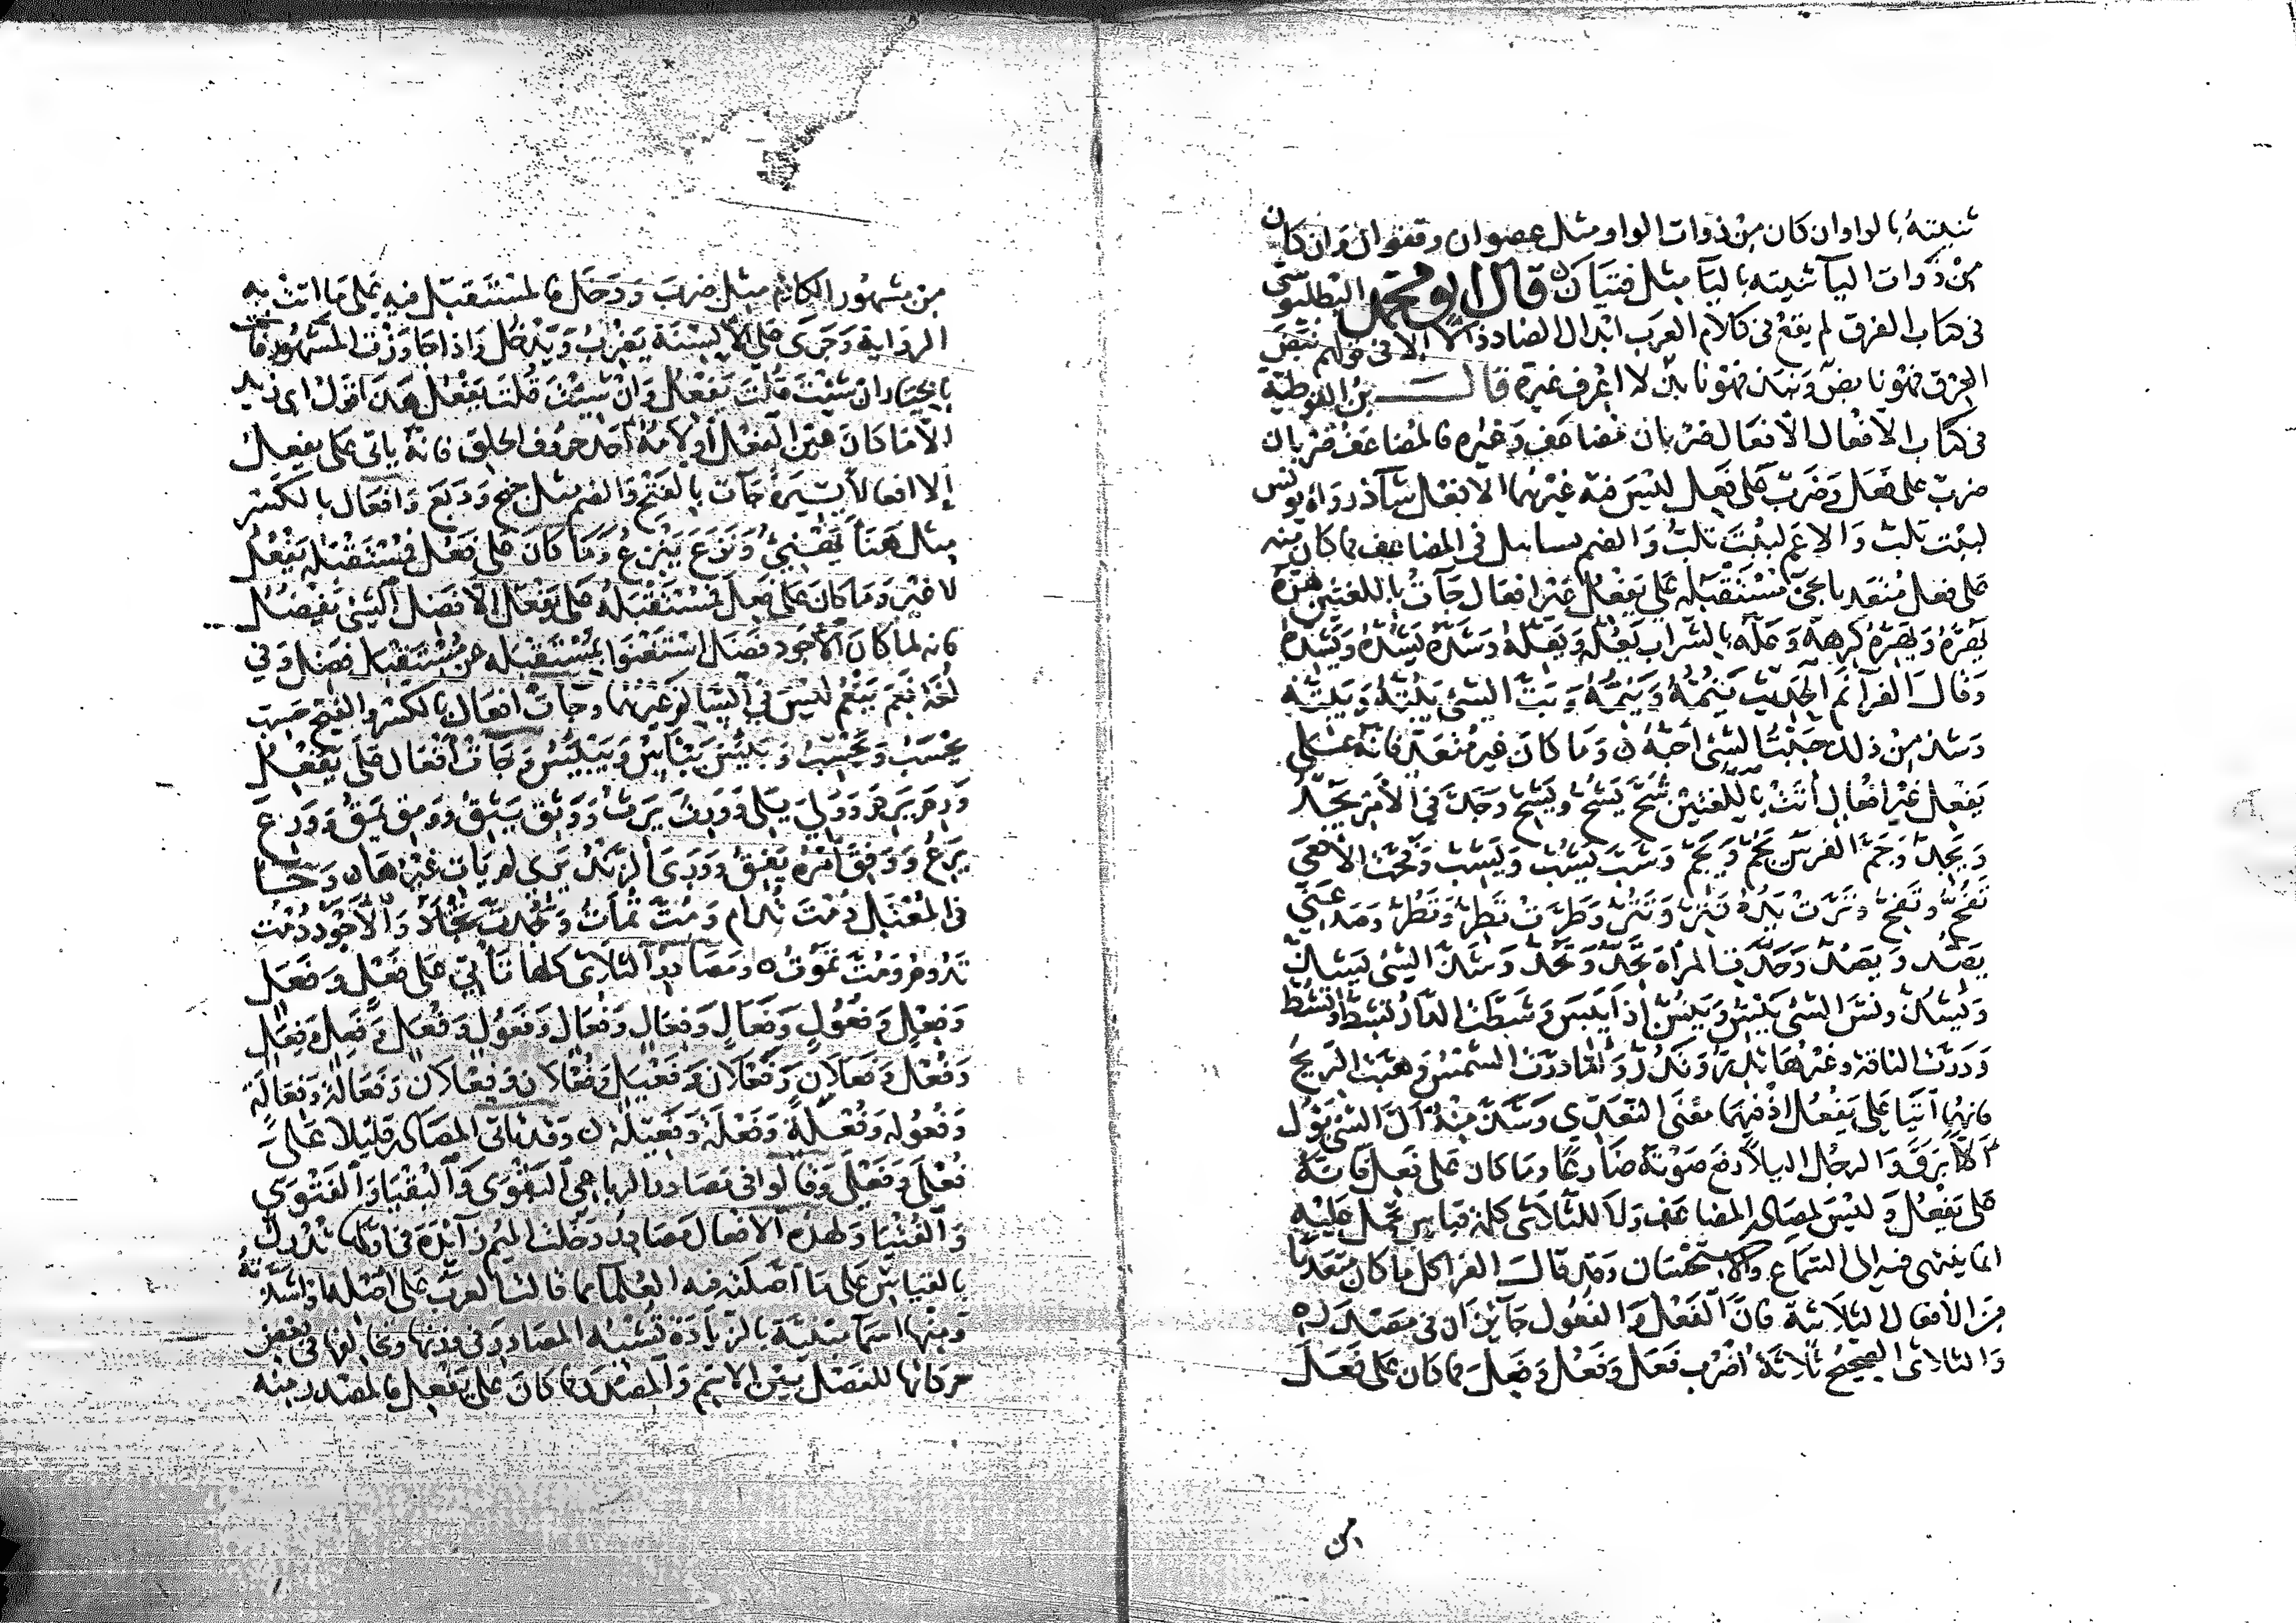 ثنيته بالواو ان كان من ذوات الواو مثل عصوان وقفوان وان كان
من ذوات اليآ ثنيته باليآ مثل فتيان قال ابو محمد البطليوسي
في كتاب الفرق لم يقع في كلام العرب ابدال الضاد ذالا الا في قولهم نبض
العرق فهو نابض ونبذ فهو نابذ لا اعرف غيره قال بن القوطية
في كتاب الافعال الافعال ضربان مضاعف وغيره فالمضاعف ضربان
ضرب على فعل وضرب على فعل ليس فيه غيرهما الا فعل شآذ رواه يونس
لببت تلب والاعم لببت تلب والضم في المضاعف فما كان منه
على فعل متعديا يجئ مستقبله على يفعل غير افعال جآت باللغتين هره
يهره ويهره كرهه وعله بالشراب يعله ويعله وشده يشده ويشده
وقال الفرآ نم الحديث ينمه وينمه وبت الشئ يبته ويبته
وشذ من ذلك حببت الشئ احبه وما كان غير متعد فانه على
يفعل غير افعال اتت باللغتين شح يشح ويشح وجد في الامر يجد
ويجد وجم الفرس يجم ويجم وشب يشب ويشب وفحت الافعى
تفح وتفح وترت يده تتر وتتر وطرت تطر وتطر وصد عني
يصد ويصد وحدت المرأة تحد وتحد وشذ الشئ يشذ
ويشذ ونس الشئ ينس وينس اذا يبس وشطت الدار تشط وتشط
ودرت الناقة وغيرها تدر وتدر واما ذرت الشمس وهبت الريح
فانهما اتيا على يفعل اذ فيهما معنى التعدي وشذ منه ال الشئ يؤل
الا برق والرجل اليلا رفع صوته ضارعا وما كان على فعل فانه
على يفعل وليس لمصادر المضاعف ولا للثلاثي كله قياس يحمل عليه
انما ينتهى فيه الى السماع والاستحسان وقد قال الفرا كل ما كان متعديا
من الافعال الثلاثية فان الفعل والفعول جائزان في مصدره
والثلاثي الصحيح ثلاثة اضرب فعل وفعل وفعل فما كان على فعل
من
من مشهور الكلام مثل ضرب ودخل فالمستقبل فيه على ما اتت به
الرواية وجرى على الالسنة يضرب ويدخل واذا جاوزت المشهور فانت
بالخيار ان شئت قلت يفعل وان شئت قلت يفعل هذا قول ابي زيد
الا ما كان عين الفعل او لامه احد حروف الحلق فانه ياتي على يفعل
إلا افعالا يسيرة جآت بالفتح والضم مثل جنح ودبغ وافعال بالكسر
مثل هنأ يهنئ ونزع ينزع وما كان على فعل فمستقبله يفعل
لا غير وما كان على فعل فمستقبله على يفعل الا فضل الشئ يفضل
فانه لما كان الاجود فضل استغنوا بمستقبله عن مستقبل فضل وفي
لغة نعم ينعم ليس في السالم غيرهما وجآت افعال بالكسر والفتح حسب
يحسب ويحسب ويئس ييأس وييئس وجآت افعال على يفعل
ورم يرم وولي يلي وورث يرث ووثق يثق وومق يمق وورع
يرع ووفق امره يفق ووري الزند يري لم يات غيرها وجا
في المعتل دمت تدام ومت تمات وجدت تجاد والاجود دمت
تدوم ومت تموت ومصادر الثلاثي كلها تأتي على فعل وفعل
وفعل وفعول وفعال وفعال وفعال وفعول وفعل وفعل وفعل
وفعل وفعلان وفعلان وفعيل وفعلان وفعلان وفعالة وفعالة
وفعوله وفعلة وفعلة وفعيلة وقد تاتى المصادر قليلا على
فعلى وفعلى وقالوا في مصادر الرباعي البقوى والبقيا والفتوى
والفتيا ولهذه الافعال مصادر دخلت الميم زآئدة في اولها تدرك
بالقياس على ما اصلته فيه العلما مما قالت العرب على اصله واشذته
ومنها اسما مبنية بالزيادة تشبه المصادر في وزنها وتخالفها في بعض
حركاتها للفصل بين الاسم والمصدر فما كان على يفعل فالمصدر منه